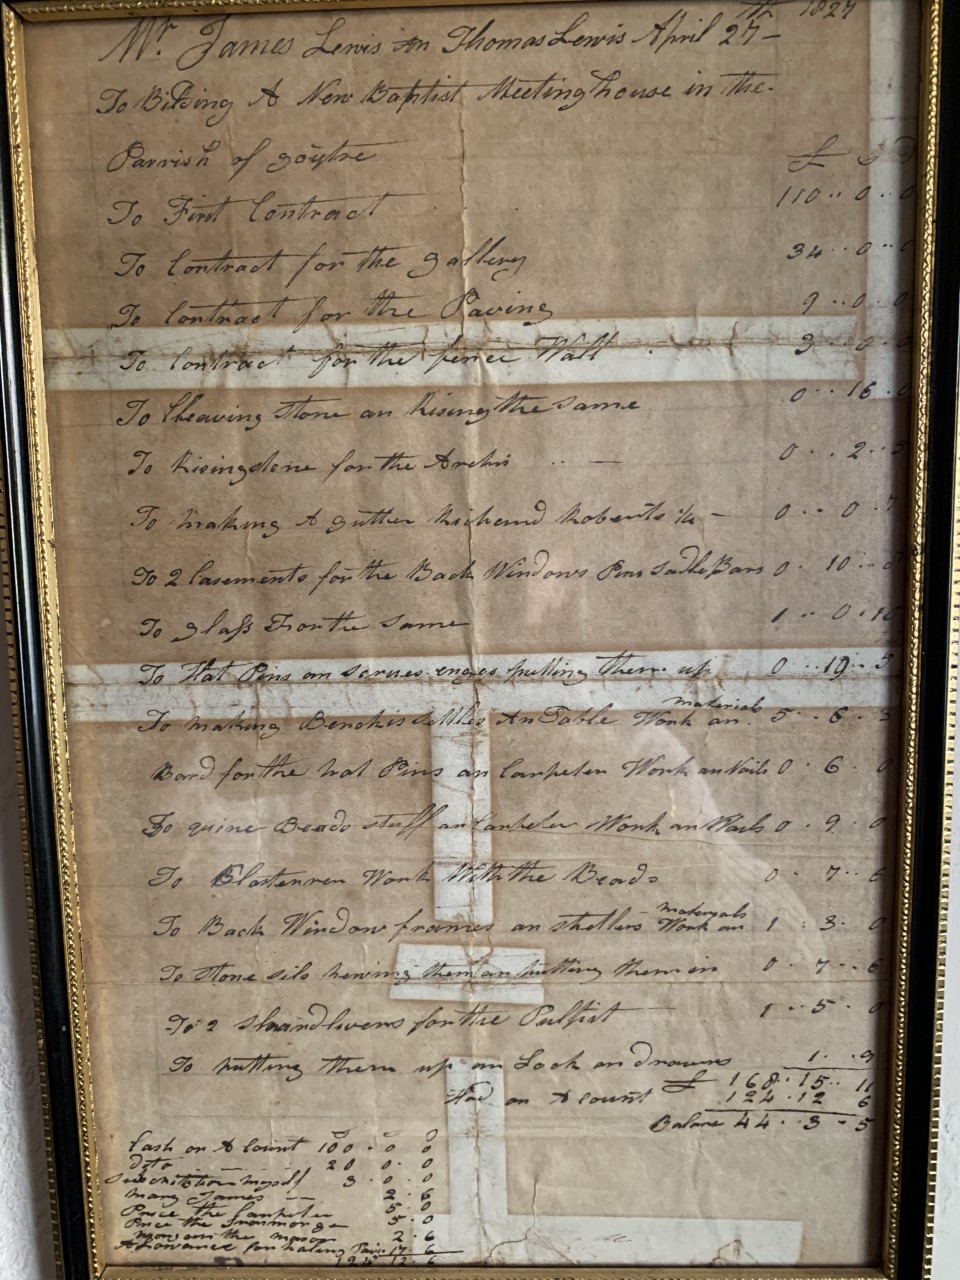 th 1827
Mr James Lewis an Thomas Lewis April 27 -
To Bilding A New Baptist Meeting house in the -
Parrish of goytre £ S D
To First Contract 110 .. 0 .. 0
To Contract for the gallery 34 .. 0 .. 0
To Contract for the Paving 9 .. 0 . 0
To Contract for the fence Wall 3 0 0
To Cleaving Stone an Rising the same 0 .. 16 . 0
To Rising stone for the Archis 0 .. 2 .. 5
To making A gutter Richard Roberts 0 .. 0 . 7
To 2 Casements for the Back Windows Pins Sadle Bars 0 . 10 ..
To glass For the same 1 .. 0 . 10
To Hat Pins an scrues putting them up 0 .. 19 .. 5
To making Benchis settles An Table Work an materials 5 . 6 . 3
Bord for the hat Pins an Carpeter Work an Nails 0 . 6 . 0
To Beads stuff an Carpeter Work an Nails 0 . 9 . 0
To Work With the Beads 0 . 7 .. 6
To Back Window frames an shetters Work an materyals 1 : 3 . 0
To Stone sils hewing them an putting them in 0 . 7 .. 6
To 2 for the Pulpit 1 .. 5 . 0
To putting them up an Lock an drawers 1 . . 9
£ 168 . 15 .. 11
Had on A Count 124 . 12 6
Balance 44 . . 3 . 5
Cash on A Count 100 . 0 0
Dito 20 0 . 0
Subscribtion myself 3 . 0 . 0
Mary James -- 2 . 6
Price the Carpeter 5 . 0
Price the Ironmonger 5 . 0
the mason 2 . 6
Allowance for haling 17 . 6
124 12 . 6